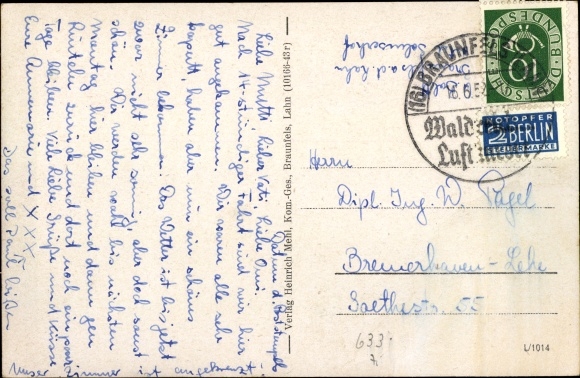 Datum d. Poststempels
Liebe Mutti, lieber Vati, liebe Omi.
Nach 14-stündiger Fahrt sind wir hier
gut angekommen. Wir waren alle sehr
kaputt haben aber nun ein schönes
Zimmer bekommen. Das Wetter ist bis jetzt
zwar nicht sehr sonnig, aber doch sonst
schön. Wir werden wohl bis nächsten
Montag hier bleiben und dann gen
Rinteln zurück und dort noch ein paar
Tage bleiben. Viele liebe Grüße und Küsse
Eure Annemarie und XXX
Das soll Pauli heißen
Unser Zimmer ist angekreuzt!
Verlag Heinrich Mehl, Kom.-Ges., Braunfels, Lahn (10166-43r)
a. d. Lahn
Solmserhof
(16) BRAUNFELS
Wald
Luft
DEUTSCHE BUNDESPOST
10
NOTOPFER
2 BERLIN
STEUERMARKE
Herrn
Dipl. Ing. W. Pagel
Bremerhaven-Lehe
Goethestr. 55
633
L/1014